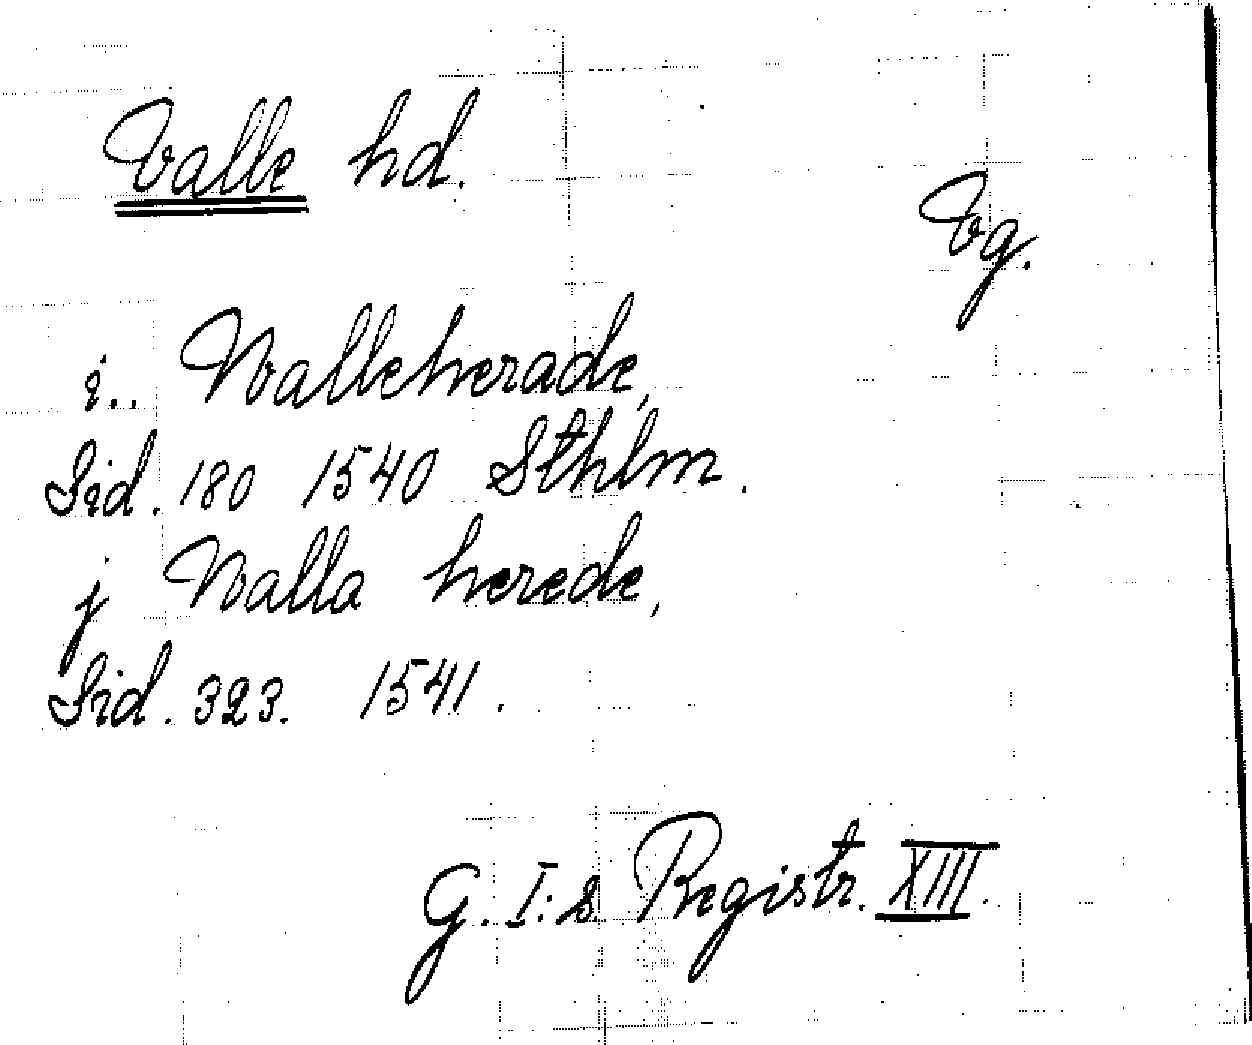 Valle hd.
Vg.
i.. Walleherade,
Sid. 180 1540 Sthlm.
j Walla herede,
Sid. 323. 1541.
G. I:s Registr. XIII.